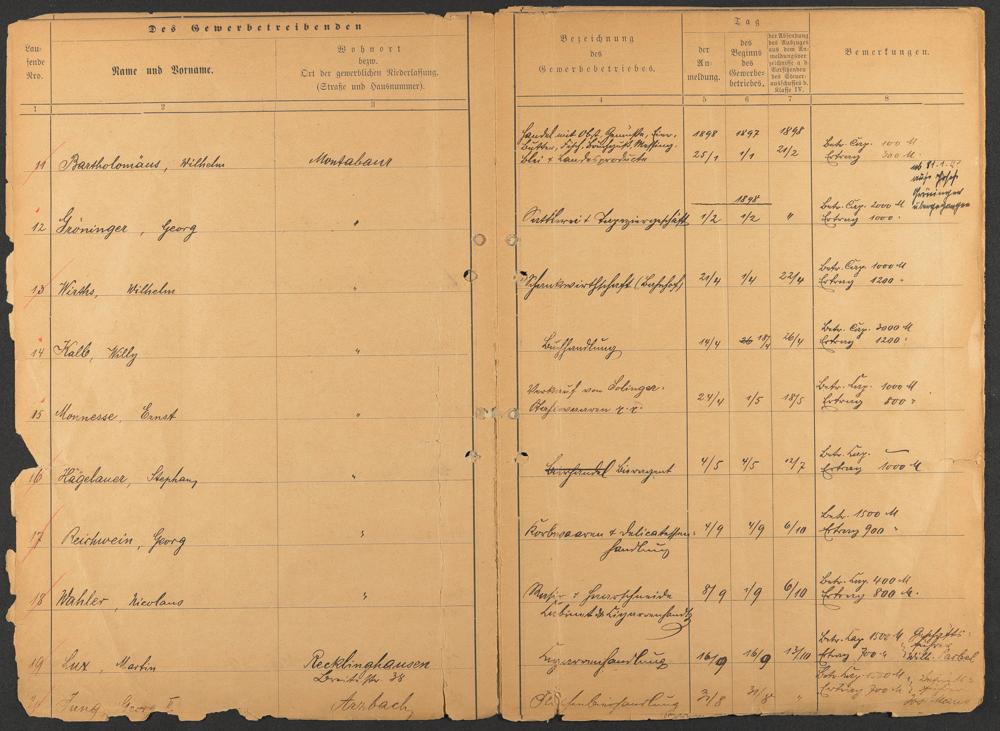 Des Gewerbetreibenden
Lau-
fende
Nro.
Name und Vorname.
Wohnort
bezw.
Ort der gewerblichen Niederlassung.
(Straße und Hausnummer).
Bezeichnung
des
Gewerbebetriebes.
Tag
der
An-
meldung.
des
Beginns
des
Gewerbe-
betriebes.
der Absendung
des Auszuges
aus dem An-
meldungsver-
zeichnisse a d
Vorsitzenden
des Steuer-
ausschusses d.
Klasse IV.
Bemerkungen.
1 2 3 4 5 6 7 8
Handel mit Obst, Gemüse, Eier,
Butter,
Blei & Landesproducte
11 Bartholomäus, Wilhelm Montabaur
1898 1897 1898
25/1 1/1 21/2
Betr. Cap. 100 M
Ertrag 300 M.
12 Gröninger, Georg "
Sattlerei & Tapeziergeschäft
1898
1/2 1/2 "
Betr. Cap. 2000 M
Ertrag 1000 "
übergegangen
13 Wirths, Wilhelm "
Schankwirthschaft (Bahnhof)
21/4 1/4 22/4
Betr. Cap. 1000 M
Ertrag 1200 "
14 Kalb, Willy "
Buchhandlung
14/4 26 18/4 26/4
Betr. Cap. 3000 M
Ertrag 1200 "
15 Monnesse, Ernst "
Verkauf von Solinger-
Stahlwaaren
24/4 1/5 18/5
Betr. Cap. 1000 M
Ertrag 800 "
16 Hägelauer, Stephan "
Bieragent
4/5 4/5 12/7
Betr. Cap. —
Ertrag 1000 M
17 Reichwein, Georg "
Korbwaaren & Delicatessen-
handlung
1/9 1/9 6/10
Betr. 1500 M
Ertrag 900 "
18 Wahler, Nicolaus "
Rasir & Haarschneide
Cabinet & Cigarrenhandl.
8/9 1/9 6/10
Betr. Cap. 400 M
Ertrag 800 M.
19 Lux, Martin Recklinghausen
Breitestr 38
Cigarrenhandlung
16/9 16/9 13/10
Betr. Cap 1500 M
Ertrag 700 "
Geschäfts-
führer
Wilh.
Jung, Georg II Arzbach
Flaschenbierhandlung
31/8 31/8 "
Ertrag 300 M